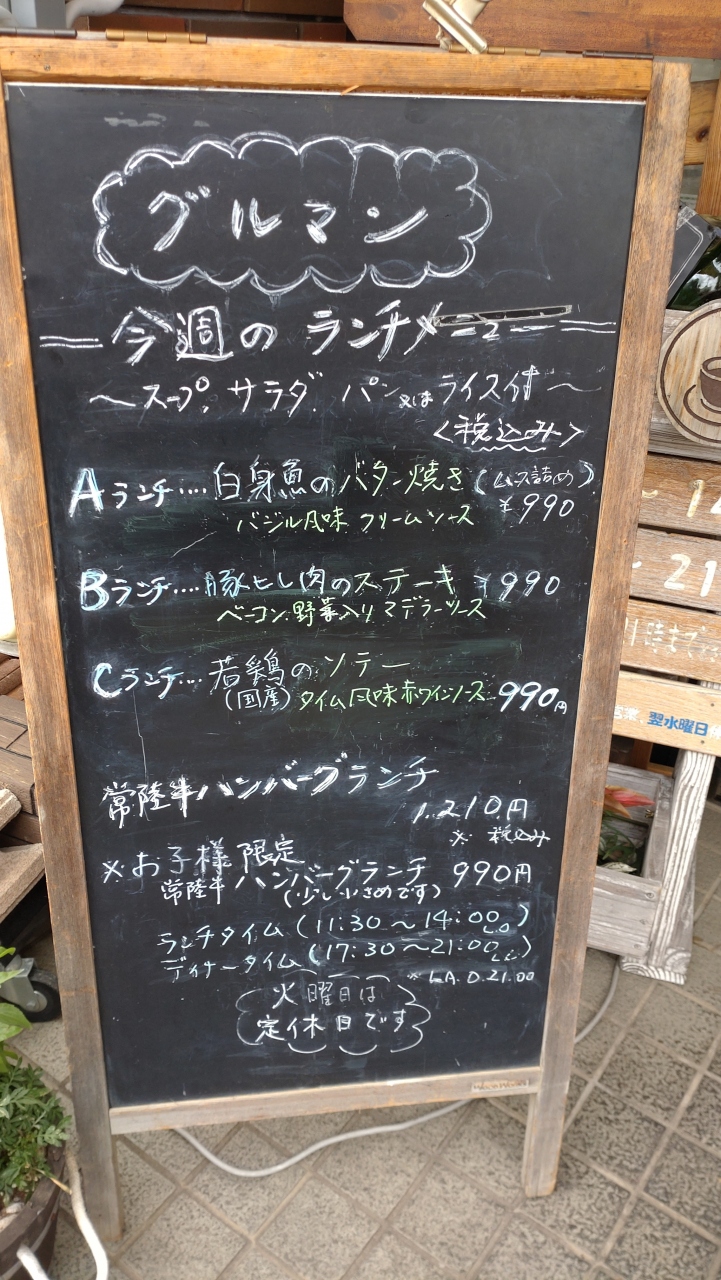 グルマン
今週のランチメニュー
〜スープ。サラダ。パン又はライス付〜
<税込み>
Aランチ....白身魚のバター焼き(ムース詰め)
¥990
バジル風味 クリームソース
Bランチ....豚ヒレ肉のステーキ ¥990
ベーコン.野菜入りマデラソース
Cランチ...若鶏のソテー
(国産)タイム風味赤ワインソース 990円
常陸牛ハンバーグランチ
1.210円
※ 税込み
※お子様限定
常陸牛ハンバーグランチ 990円
(少し小さめです)
ランチタイム(11:30〜14:00 L.O)
ディナータイム(17:30〜21:00
※L.A.O.21.00
火曜日は
定休日です
〜14
〜21
翌水曜日